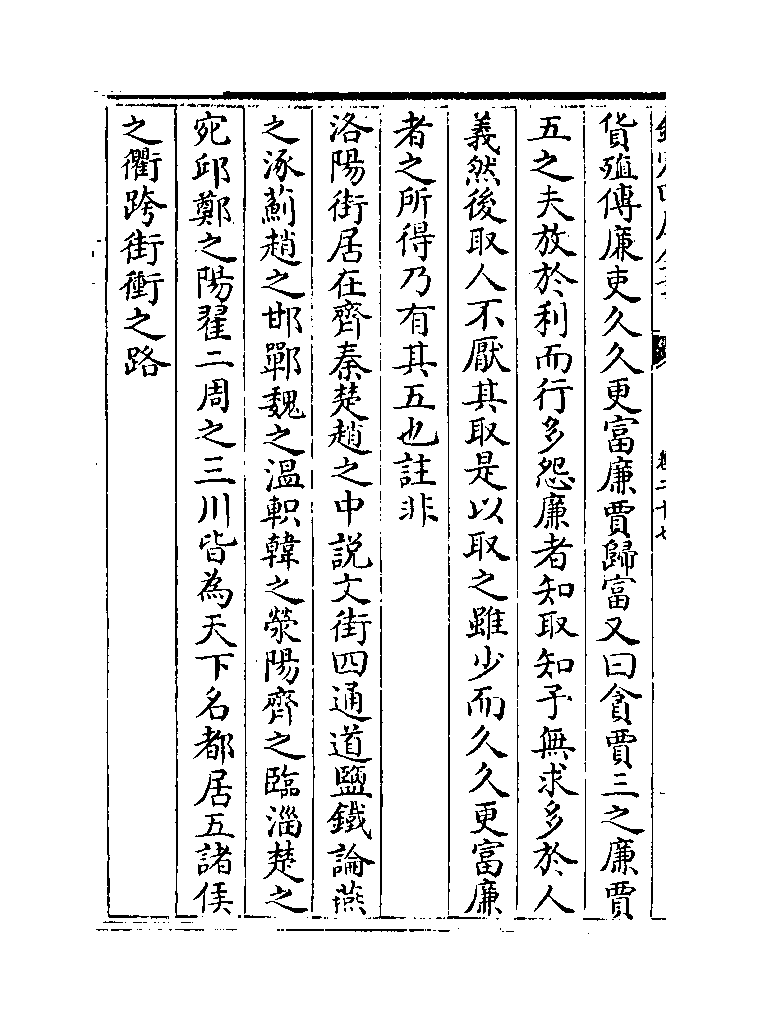 卷二十七
貨殖傳廉吏久久更富廉賈歸富又曰貪賈三之廉賈
五之夫放於利而行多怨廉者知取知予無求多於人
義然後取人不厭其取是以取之雖少而久久更富廉
者之所得乃有其五也註非
洛陽街居在齊秦楚趙之中説文街四通道鹽鐵論燕
之涿薊趙之邯鄲魏之温軹韓之滎陽齊之臨淄楚之
宛邱鄭之陽翟二周之三川皆為天下名都居五諸侯
之衢跨街衝之路